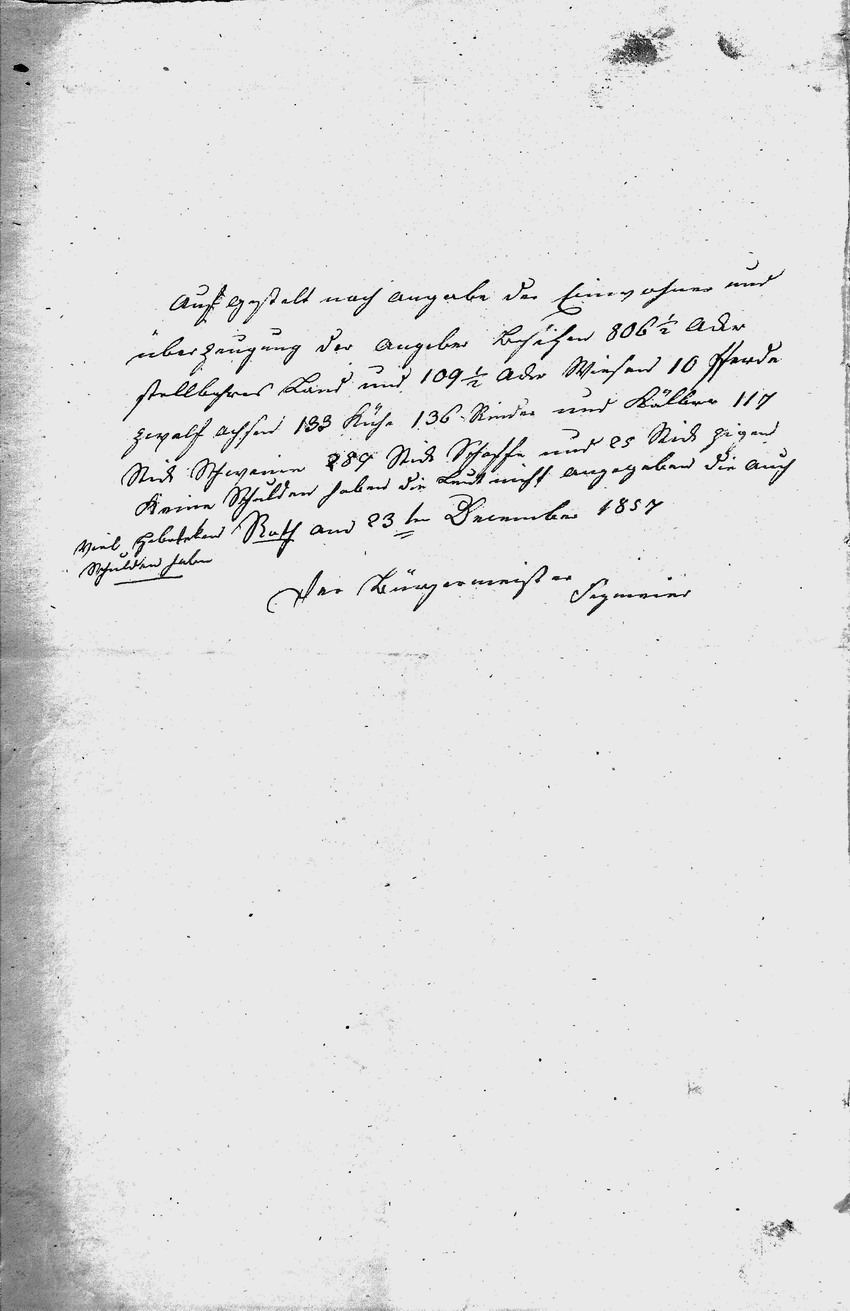 Auf gestelt nach angabe der Einwohner und
überzeugung der angeber besitzen 806 1/2 Acker
stellbahres Land und 109 1/2 Acker Wiesen 10 Pferde
zwolf achsen 133 Kühe 136 Rinder und Kälber 117
Stick Schweine 289 Stick Schaffe und 25 Stick zigen
Keine Schulden haben die Leut nicht angegeben die auch
viel Schulden haben
Roth am 23 ten December 1857
Der Bürgermeister